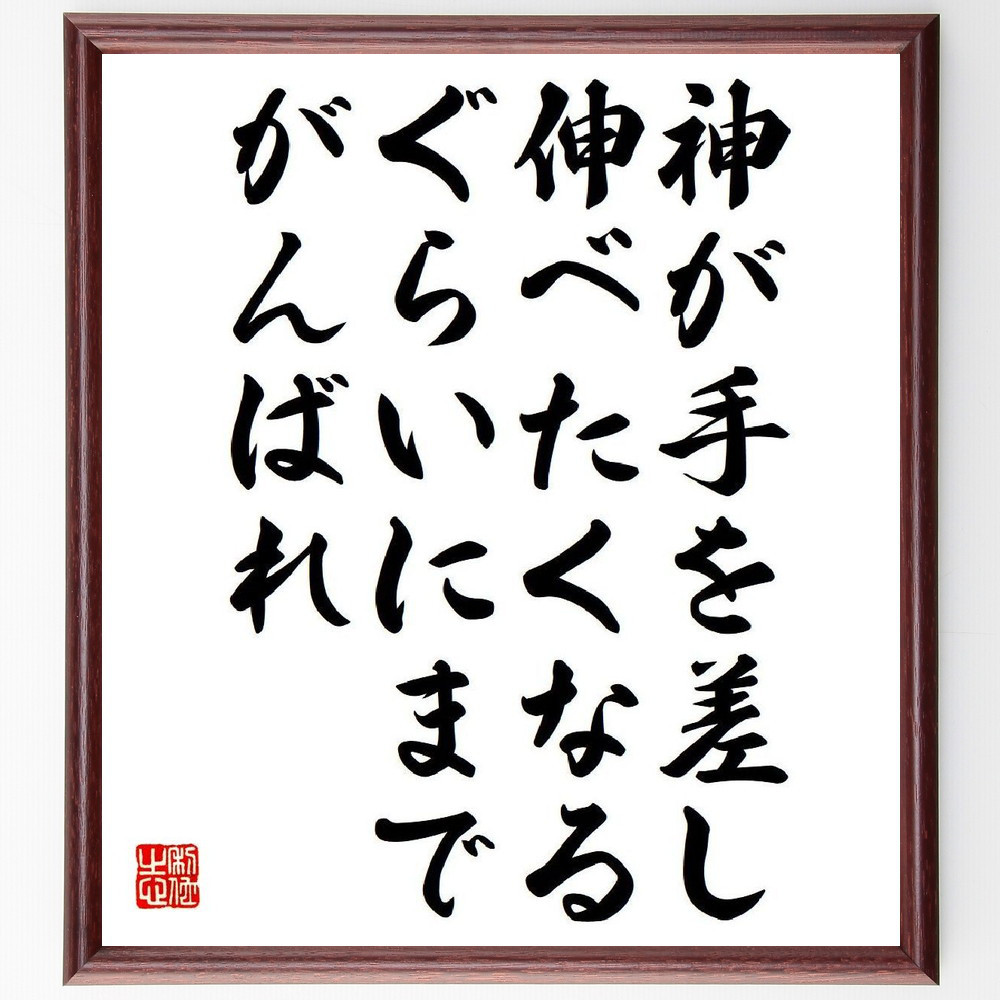 神が手を差し
伸べたくなる
ぐらいにまで
がんばれ